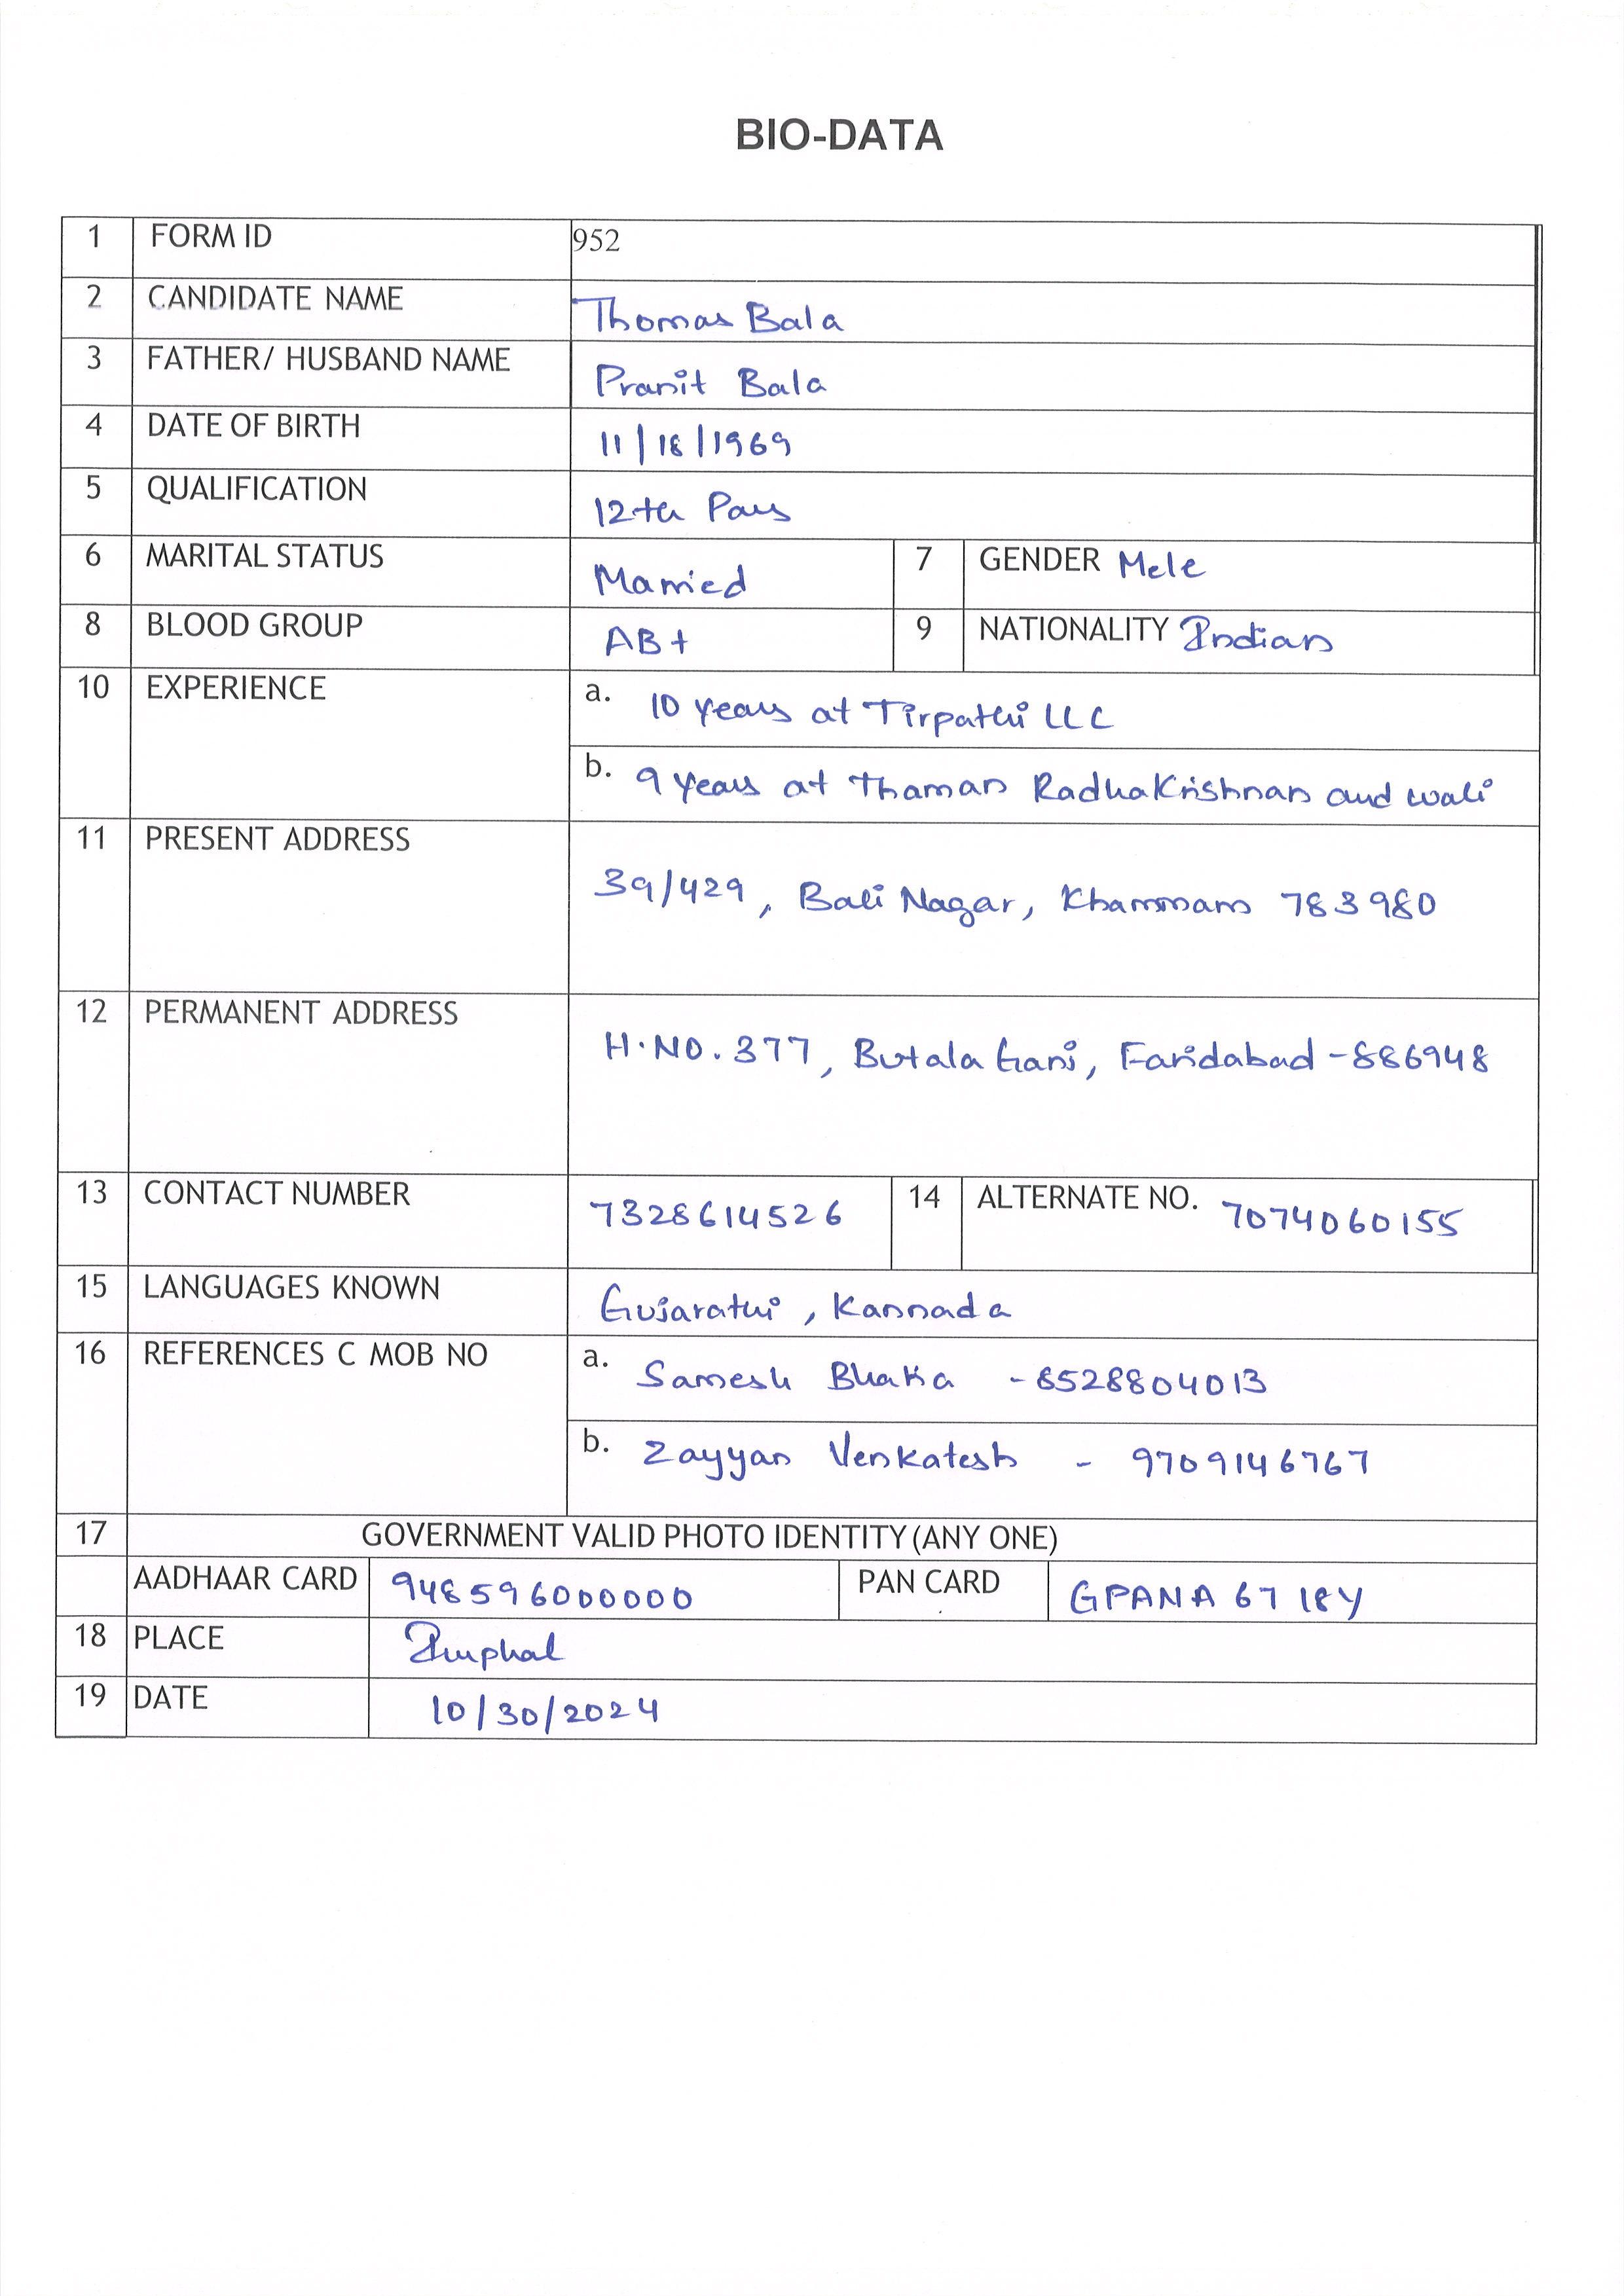 BIO-DATA
1 FORM ID 952
2 CANDIDATE NAME Thomas Bala
3 FATHER/ HUSBAND NAME Pranit Bala
4 DATE OF BIRTH 11/18/1969
5 QUALIFICATION 12th Pass
6 MARITAL STATUS Married 7 GENDER Male
8 BLOOD GROUP AB+ 9 NATIONALITY Indian
10 EXPERIENCE a. 10 years at Tirpathi LLC
b. 9 years at Thaman Radhakrishnan and wali
11 PRESENT ADDRESS 39/429, Bali Nagar, Khammam 783980
12 PERMANENT ADDRESS H.NO. 377, Butala Ganj, Faridabad -886948
13 CONTACT NUMBER 7328614526 14 ALTERNATE NO. 7074060155
15 LANGUAGES KNOWN Gujarathi, Kannada
16 REFERENCES C MOB NO a. Samesh Bhaka -8528804013
b. Zayyan Venkatesh - 9709146767
17 GOVERNMENT VALID PHOTO IDENTITY (ANY ONE)
AADHAAR CARD 948596000000 PAN CARD GPANA6718Y
18 PLACE Imphal
19 DATE 10/30/2024